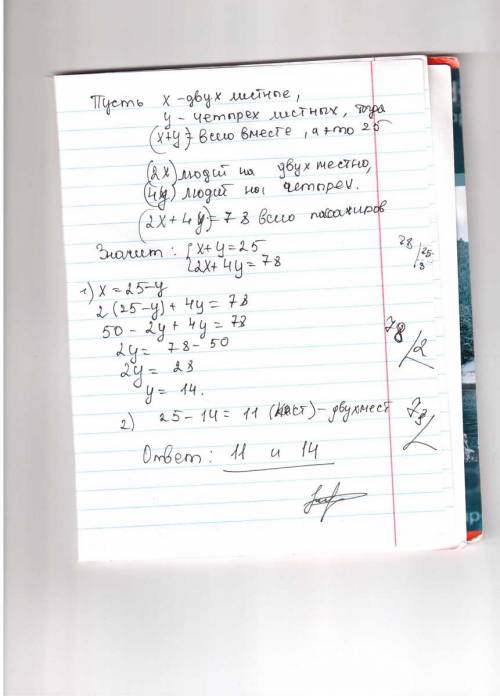 Пусть x - двух местные,
y - четырех местных, тогда
(x+y) - всего вместе, а это 25
(2x) людей на двухместно,
(4y) людей на четырех.
(2x + 4y) = 78 всего пассажиров
Значит: { x + y = 25
{ 2x + 4y = 78
1) x = 25 - y
2 (25 - y) + 4y = 78
50 - 2y + 4y = 78
2y = 78 - 50
2y = 28
y = 14.
2) 25 - 14 = 11 (мест) - двухмест
Ответ: 11 и 14
28 25
78 2